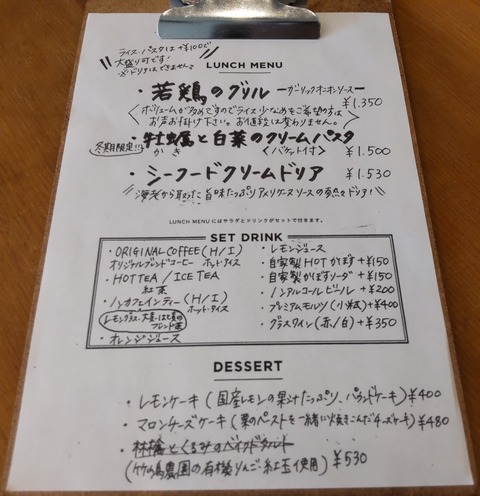 ライス・パスタは+¥100で
大盛り可です!
※ドリアはできません
LUNCH MENU
・若鶏のグリル ーガーリックオニオンソースー
¥1.350
〈ボリュームが多めですのでライス少なめをご希望の方は
お声お掛け下さい。お値段は変わりません。〉
冬期限定!!
・牡蠣と白菜のクリームパスタ
かき
〈バケット付〉 ¥1.500
・シーフードクリームドリア ¥1.530
海老から取った旨味たっぷりアメリケーヌソースの ドリア!
LUNCH MENU にはサラダとドリンクがセットで付きます。
SET DRINK
・ORIGINAL COFFEE (H/I)
オリジナルブレンドコーヒー ホット・アイス
・HOT TEA / ICE TEA
紅茶
・ノンカフェインティー (H/I)
ホット・アイス
レモングラス、大麦、はと麦の
ブレンド茶
・オレンジジュース
・レモンジュース
・自家製HOTかぼす +¥150
・自家製かぼすソーダ +¥150
・ノンアルコールビール +¥200
・プレミアムモルツ (小瓶) +¥400
・グラスワイン (赤/白) +¥350
DESSERT
・レモンケーキ (国産レモンの果汁たっぷり、パウンドケーキ) ¥400
・マロンチーズケーキ (栗のペーストを一緒に焼きこんだチーズケーキ) ¥480
・林檎とくるみのベイクドタルト
(竹嶋農園の有機りんご・紅玉使用) ¥530